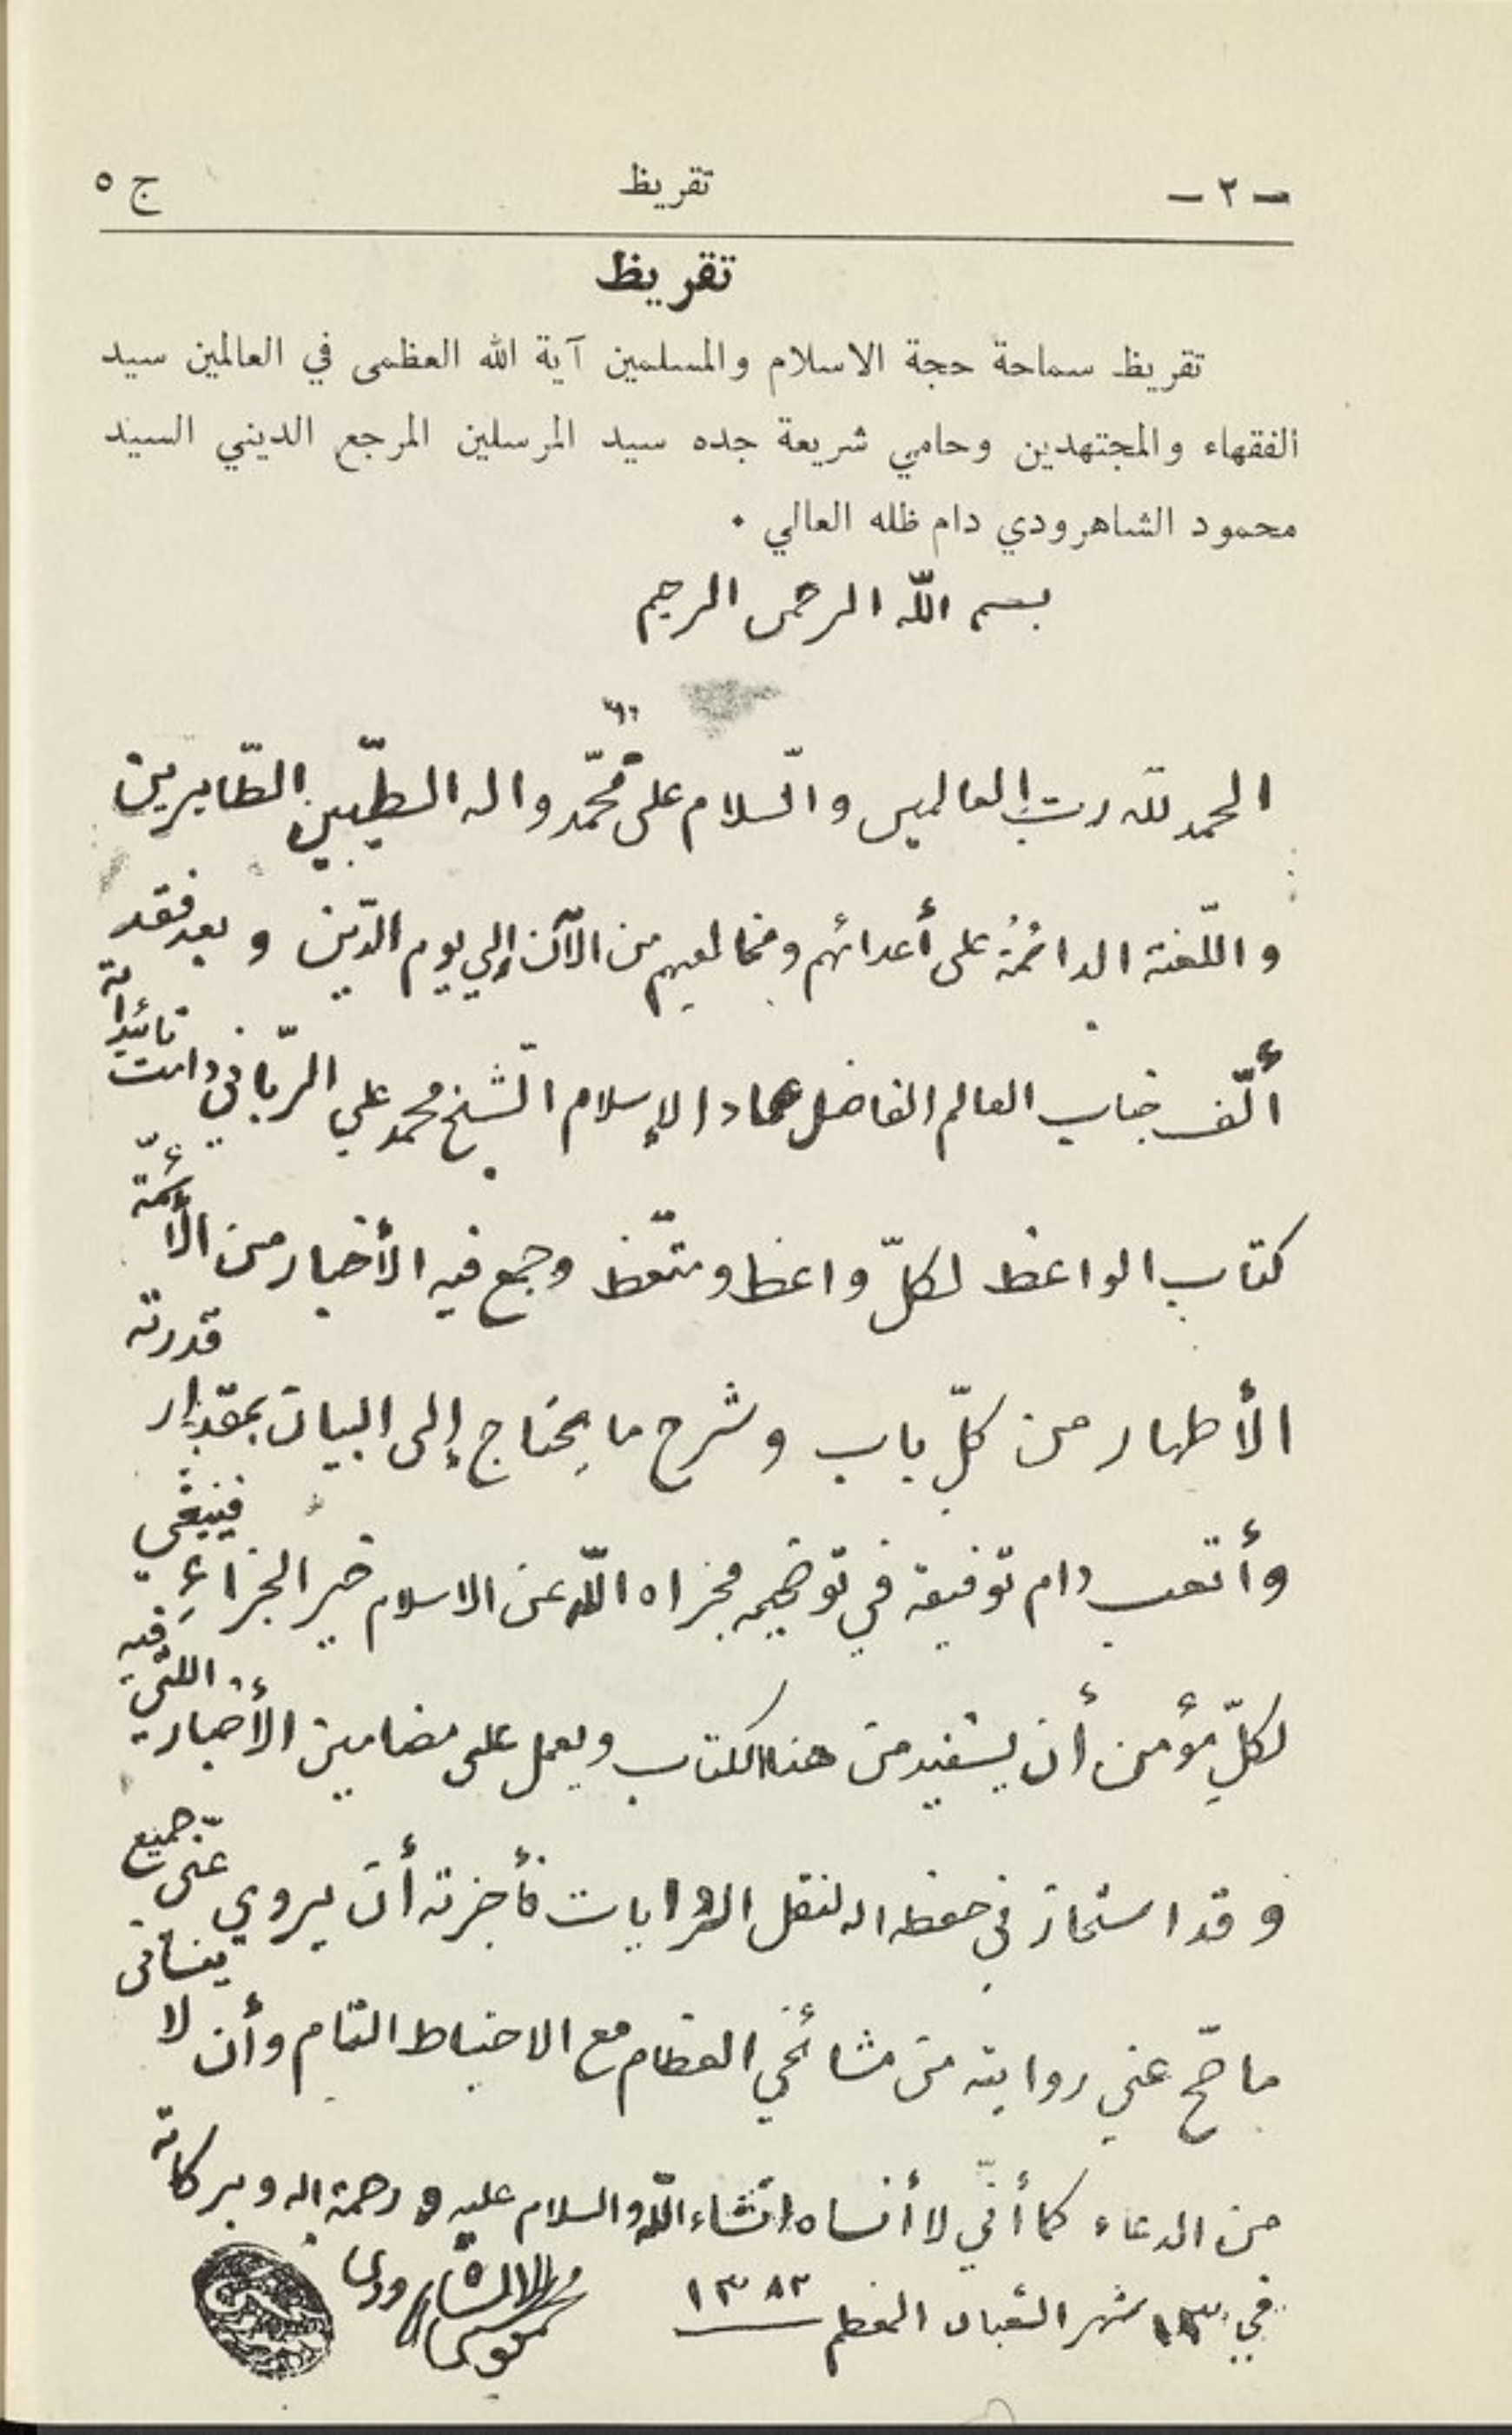 - ٢ - تقريظ ج ٥
تقريظ
تقريظ سماحة حجة الاسلام والمسلمين آية الله العظمى في العالمين سيد
الفقهاء والمجتهدين وحامي شريعة جده سيد المرسلين المرجع الديني السيد
محمود الشاهرودي دام ظله العالي .
بسم اللّه الرحمن الرحيم
الحمد للّه ربّ العالمين والسّلام على محمّد واله الطيّبين الطّاهرين
واللّعنة الدائمة على أعدائهم ومخالفيهم من الآن إلي يوم الدّين و بعد فقد
ألّف جناب العالم الفاضل عماد الإسلام الشّيخ محمد علي الرّباني دامت تائيداته
كتاب الواعظ لكلّ واعظ ومتّعظ وجمع فيه الأخبار من الأئمّة
الأطهار من كلّ باب وشرح ما يحتاج إلى البيان بمقدار قدرته
وأتعب دام توفيقه في توضيحه فجزاه اللّه عن الاسلام خير الجزاء فينبغي
لكلّ مؤمن أن يستفيد من هذا الكتاب ويعمل على مضامين الأخبار اللتي فيه
وقد استجاز في حفظه الله لنقل الروايات فأجزته أن يروي عنّى جميع
ما صحّ عني روايته من مشائخي العظام مع الاحتياط التام وأن لا ينساني
من الدعاء كما أنّي لا أنساه انشاء اللّه والسلام عليه و رحمة الله وبركاته
في ١٣ شهر الشعبان المعظم ١٣٨٣
محمود الحسيني الشاهرودي